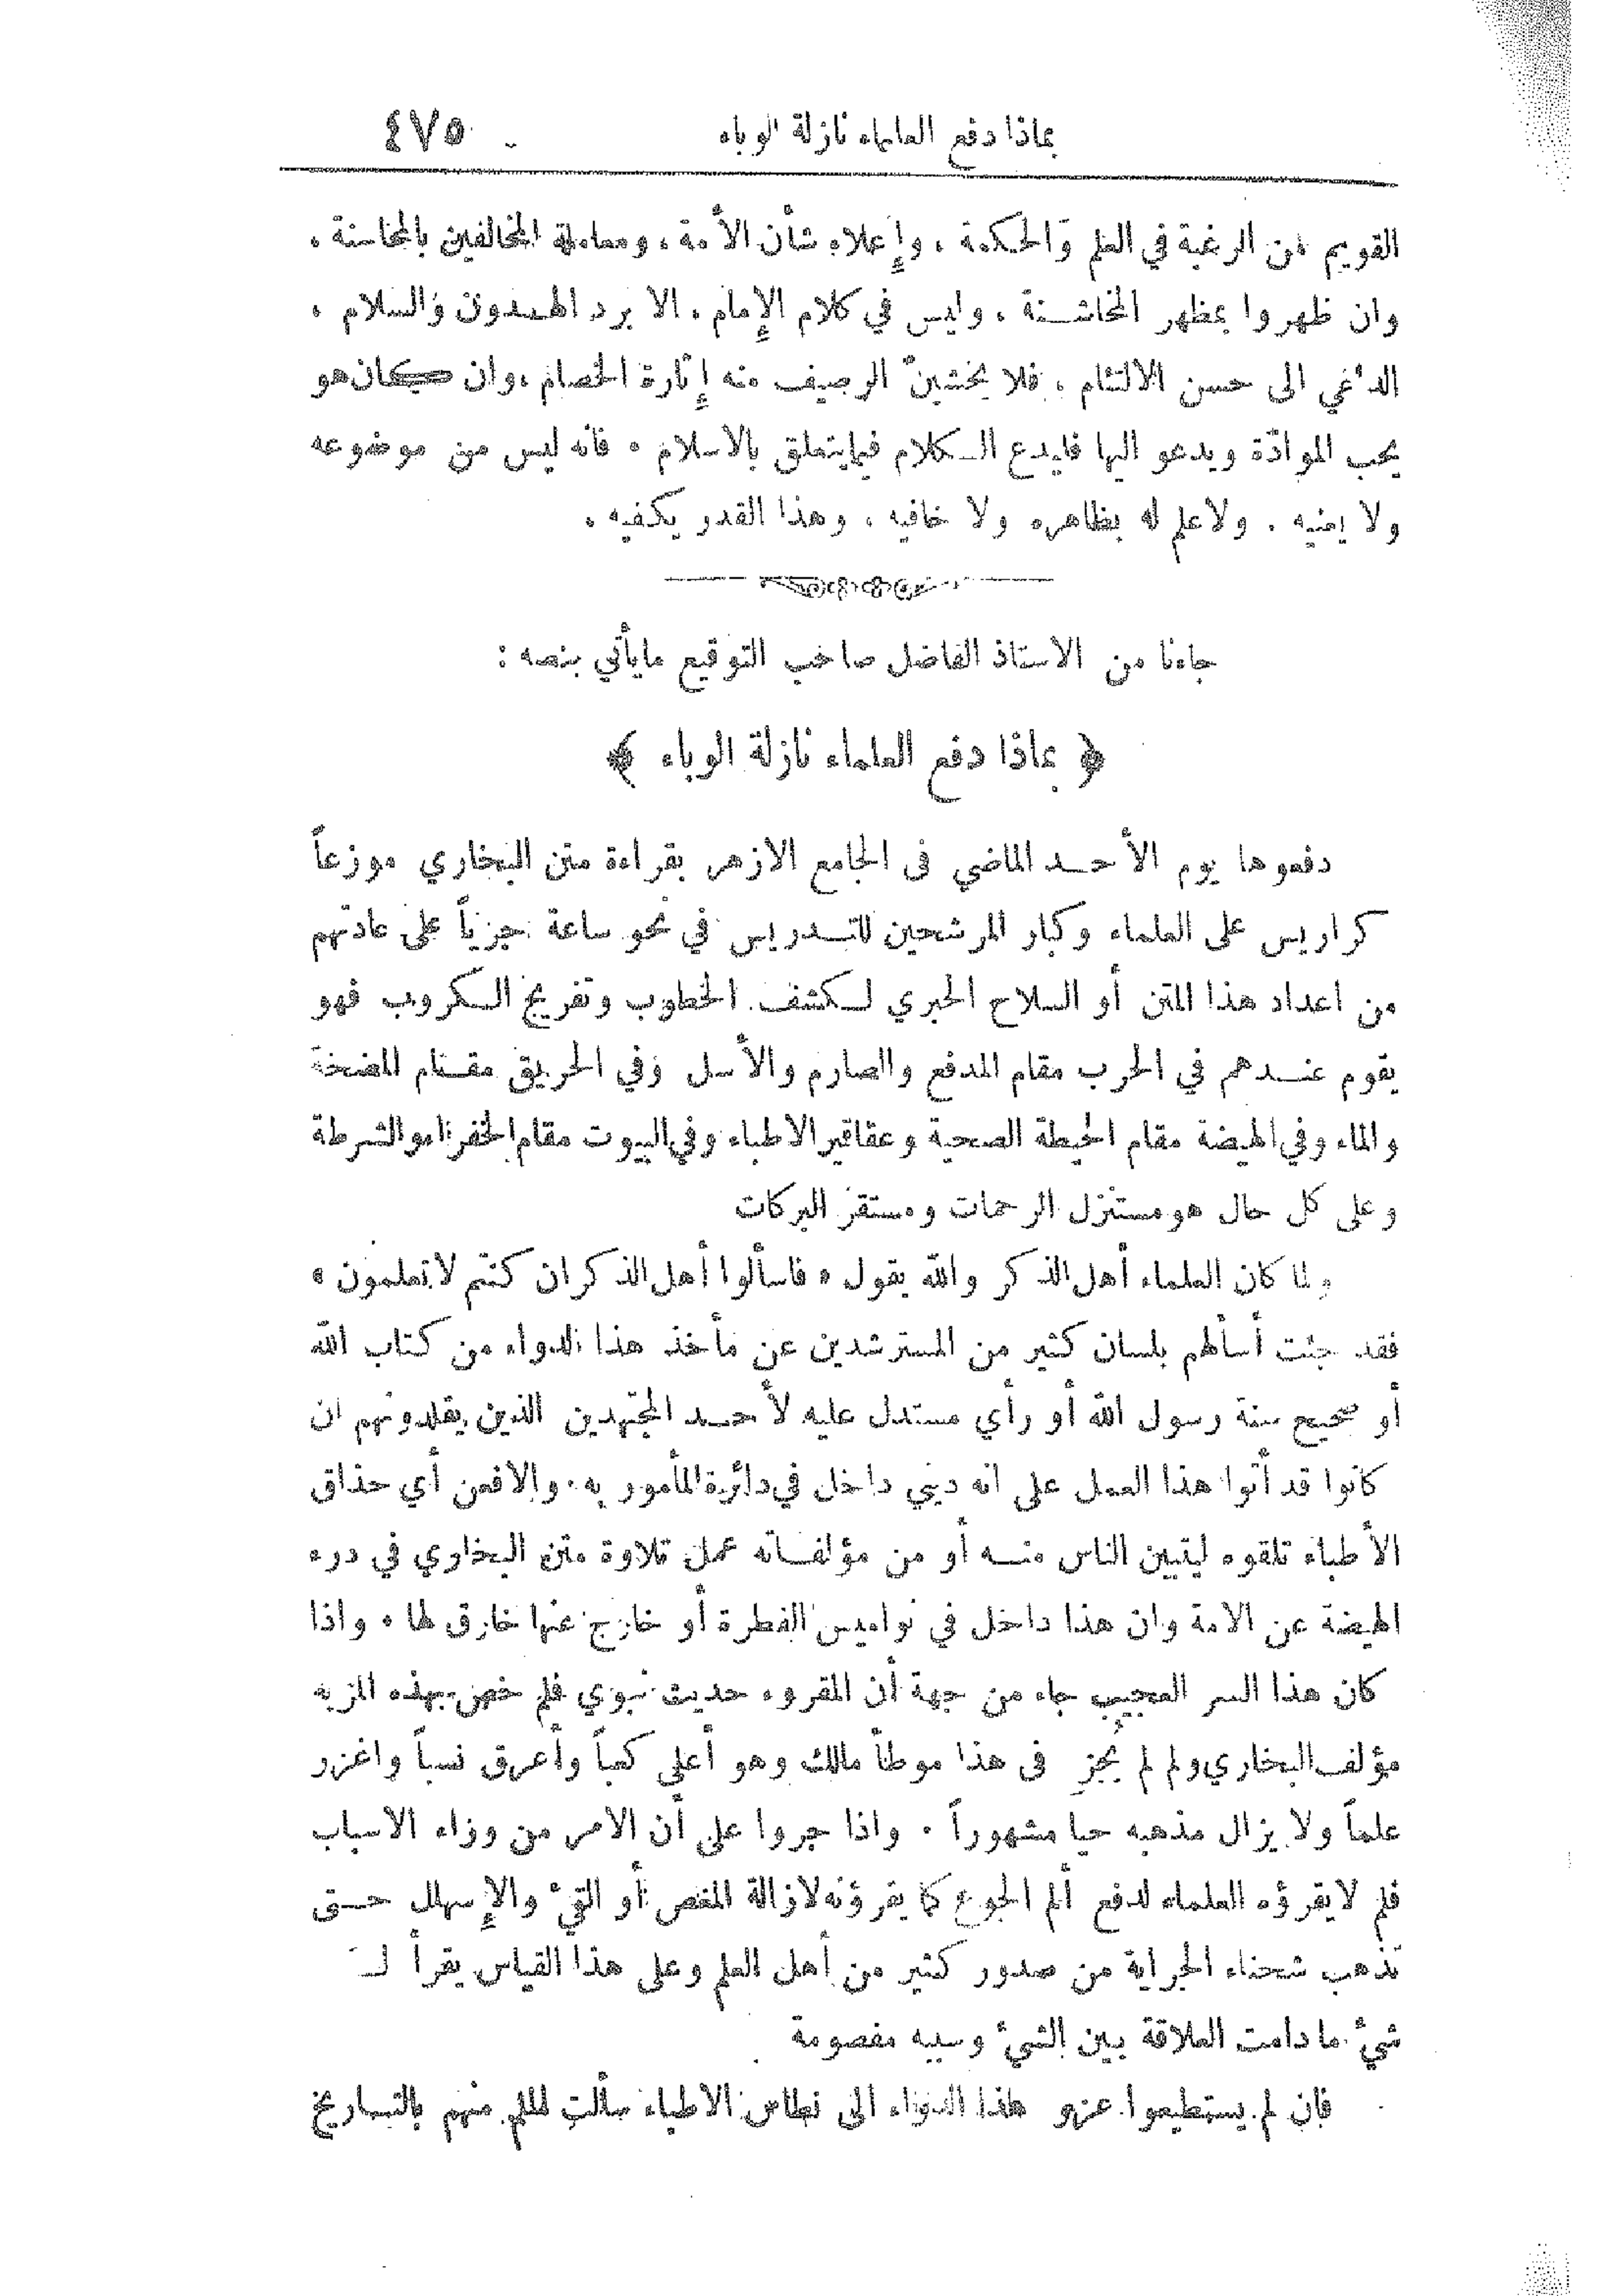 بماذا دفع العلماء نازلة الوباء ٤٧٥
القويم من الرغبة في العلم والحكمة ، وإعلاء شأن الأمة ، ومعاملة المخالفين بالمحاسنة ،
وان ظهروا بمظهر المخاشنة ، وليس في كلام الإمام ، الا برد الهدون والسلام ،
الداعي الى حسن الالتئام ، فلا يخشينّ الرصيف منه إثارة الخصام ، وان كان هو
يحب الموادّة ويدعو اليها فليدع الكلام فيما يتعلق بالاسلام . فانه ليس من موضوعه
ولا يعنيه . ولا علم له بظاهره ولا خافيه ، وهذا القدر يكفيه .
جاءنا من الاستاذ الفاضل صاحب التوقيع مايأتي بنصه :
﴿ بماذا دفع العلماء نازلة الوباء ﴾
دفعوها يوم الأحد الماضي فى الجامع الازهر بقراءة متن البخاري موزعاً
كراريس على العلماء وكبار المرشحين للتدريس في نحو ساعة جرياً على عادتهم
من اعداد هذا المتن أو السلاح الحبري لكشف الخطوب وتفريج الكروب فهو
يقوم عندهم في الحرب مقام المدفع والصارم والأسل وفي الحريق مقام المضخة
والماء وفي الهيضة مقام الحيطة الصحية وعقاقير الاطباء وفي البيوت مقام الخفراء والشرطة
وعلى كل حال هو مستنزل الرحمات ومستقر البركات
ولما كان العلماء أهل الذكر والله يقول « فاسألوا أهل الذكر ان كنتم لا تعلمون »
فقد جئت أسألهم بلسان كثير من المسترشدين عن مأخذ هذا الدواء من كتاب الله
أو صحيح سنة رسول الله أو رأي مستدل عليه لأحد المجتهدين الذين يقلدونهم ان
كانوا قد أتوا هذا العمل على انه ديني داخل في دائرة المأمور به . والا فعن أي حذاق
الأطباء تلقوه ليتبين الناس منه أو من مؤلفاته عمل تلاوة متن البخاري في درء
الهيضة عن الامة وان هذا داخل في نواميس الفطرة أو خارج عنها خارق لها . واذا
كان هذا السر العجيب جاء من جهة أن المقروء حديث نبوي فلم خص بهذه المزية
مؤلف البخاري ولم لم يُجزِ فى هذا موطأ مالك وهو أعلى كعباً وأعرق نسباً واغزر
علماً ولا يزال مذهبه حيا مشهوراً . واذا جروا على أن الامر من وراء الاسباب
فلم لا يقرؤه العلماء لدفع ألم الجوع كما يقرؤنه لازالة المغص أو القيء والإسهال حتى
تذهب شحناء الجراية من صدور كثير من أهل العلم وعلى هذا القياس يقرأ
شيء ما دامت العلاقة بين الشيء وسببه مفصومة
فإن لم يستطيعوا عزو هذا الدواء الى نطاس الاطباء سألت الملم منهم بالتاريخ